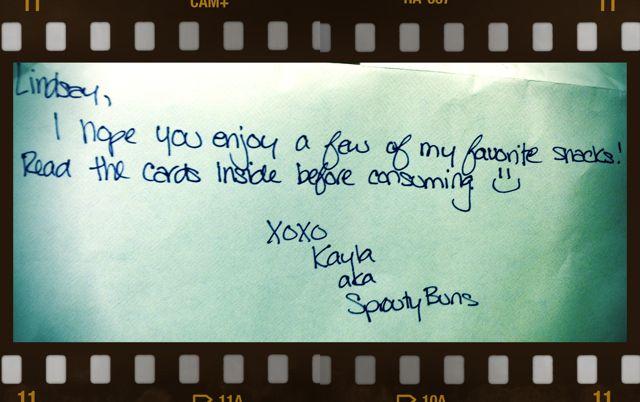 11 CAM+ 11
Lindsay,
I hope you enjoy a few of my favorite snacks!
Read the cards inside before consuming
XOXO
Kayla
aka
Sprouty Buns
11 11A 10A 11